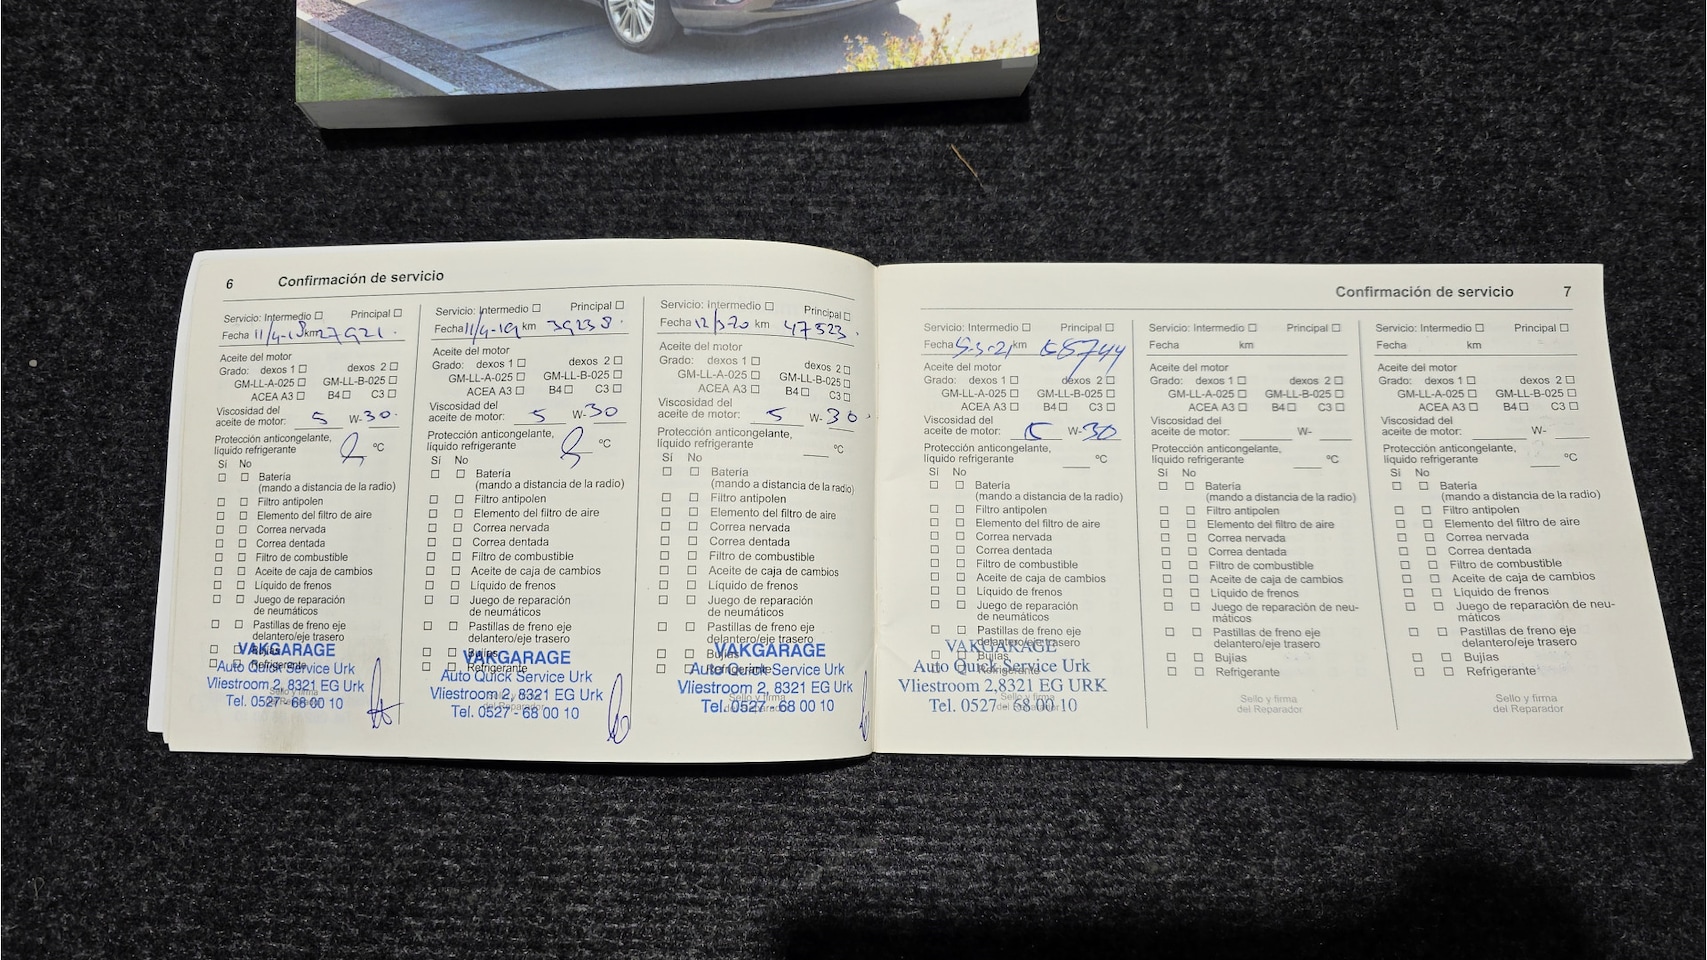 6 Confirmación de servicio
Servicio: Intermedio ☐ Principal ☐
Fecha 11/4-18 km 27921.
Aceite del motor
Grado: dexos 1 ☐ dexos 2 ☐
GM-LL-A-025 ☐ GM-LL-B-025 ☐
ACEA A3 ☐ B4 ☐ C3 ☐
Viscosidad del
aceite de motor: 5 W-30.
Protección anticongelante,
líquido refrigerante °C
Sí No
☐ ☐ Batería
(mando a distancia de la radio)
☐ ☐ Filtro antipolen
☐ ☐ Elemento del filtro de aire
☐ ☐ Correa nervada
☐ ☐ Correa dentada
☐ ☐ Filtro de combustible
☐ ☐ Aceite de caja de cambios
☐ ☐ Líquido de frenos
☐ ☐ Juego de reparación
de neumáticos
☐ ☐ Pastillas de freno eje
delantero/eje trasero
☐ ☐ Bujías
☐ ☐ Refrigerante
VAKGARAGE
Auto Quick Service Urk
Vliestroom 2, 8321 EG Urk
Tel. 0527 - 68 00 10
Sello y firma
del Reparador
Servicio: Intermedio ☐ Principal ☐
Fecha 11/4-19 km 39238.
Aceite del motor
Grado: dexos 1 ☐ dexos 2 ☐
GM-LL-A-025 ☐ GM-LL-B-025 ☐
ACEA A3 ☐ B4 ☐ C3 ☐
Viscosidad del
aceite de motor: 5 W-30
Protección anticongelante,
líquido refrigerante °C
Sí No
☐ ☐ Batería
(mando a distancia de la radio)
☐ ☐ Filtro antipolen
☐ ☐ Elemento del filtro de aire
☐ ☐ Correa nervada
☐ ☐ Correa dentada
☐ ☐ Filtro de combustible
☐ ☐ Aceite de caja de cambios
☐ ☐ Líquido de frenos
☐ ☐ Juego de reparación
de neumáticos
☐ ☐ Pastillas de freno eje
delantero/eje trasero
☐ ☐ Bujías
☐ ☐ Refrigerante
VAKGARAGE
Auto Quick Service Urk
Vliestroom 2, 8321 EG Urk
Tel. 0527 - 68 00 10
Sello y firma
del Reparador
Servicio: Intermedio ☐ Principal ☐
Fecha 12/3 20 km 47523.
Aceite del motor
Grado: dexos 1 ☐ dexos 2 ☐
GM-LL-A-025 ☐ GM-LL-B-025 ☐
ACEA A3 ☐ B4 ☐ C3 ☐
Viscosidad del
aceite de motor: 5 W-30.
Protección anticongelante,
líquido refrigerante °C
Sí No
☐ ☐ Batería
(mando a distancia de la radio)
☐ ☐ Filtro antipolen
☐ ☐ Elemento del filtro de aire
☐ ☐ Correa nervada
☐ ☐ Correa dentada
☐ ☐ Filtro de combustible
☐ ☐ Aceite de caja de cambios
☐ ☐ Líquido de frenos
☐ ☐ Juego de reparación
de neumáticos
☐ ☐ Pastillas de freno eje
delantero/eje trasero
☐ ☐ Bujías
☐ ☐ Refrigerante
VAKGARAGE
Auto Quick Service Urk
Vliestroom 2, 8321 EG Urk
Tel. 0527 - 68 00 10
Sello y firma
del Reparador
Confirmación de servicio 7
Servicio: Intermedio ☐ Principal ☐
Fecha km
Aceite del motor
Grado: dexos 1 ☐ dexos 2 ☐
GM-LL-A-025 ☐ GM-LL-B-025 ☐
ACEA A3 ☐ B4 ☐ C3 ☐
Viscosidad del
aceite de motor: 5 W-30
Protección anticongelante,
líquido refrigerante °C
Sí No
☐ ☐ Batería
(mando a distancia de la radio)
☐ ☐ Filtro antipolen
☐ ☐ Elemento del filtro de aire
☐ ☐ Correa nervada
☐ ☐ Correa dentada
☐ ☐ Filtro de combustible
☐ ☐ Aceite de caja de cambios
☐ ☐ Líquido de frenos
☐ ☐ Juego de reparación
de neumáticos
☐ ☐ Pastillas de freno eje
delantero/eje trasero
☐ ☐ Bujías
☐ ☐ Refrigerante
VAKGARAGE
Auto Quick Service Urk
Vliestroom 2,8321 EG URK
Tel. 0527 - 68 00 10
Sello y firma
del Reparador
Servicio: Intermedio ☐ Principal ☐
Fecha km
Aceite del motor
Grado: dexos 1 ☐ dexos 2 ☐
GM-LL-A-025 ☐ GM-LL-B-025 ☐
ACEA A3 ☐ B4 ☐ C3 ☐
Viscosidad del
aceite de motor: W-
Protección anticongelante,
líquido refrigerante °C
Sí No
☐ ☐ Batería
(mando a distancia de la radio)
☐ ☐ Filtro antipolen
☐ ☐ Elemento del filtro de aire
☐ ☐ Correa nervada
☐ ☐ Correa dentada
☐ ☐ Filtro de combustible
☐ ☐ Aceite de caja de cambios
☐ ☐ Líquido de frenos
☐ ☐ Juego de reparación de neu-
máticos
☐ ☐ Pastillas de freno eje
delantero/eje trasero
☐ ☐ Bujías
☐ ☐ Refrigerante
Sello y firma
del Reparador
Servicio: Intermedio ☐ Principal ☐
Fecha km
Aceite del motor
Grado: dexos 1 ☐ dexos 2 ☐
GM-LL-A-025 ☐ GM-LL-B-025 ☐
ACEA A3 ☐ B4 ☐ C3 ☐
Viscosidad del
aceite de motor: W-
Protección anticongelante,
líquido refrigerante °C
Sí No
☐ ☐ Batería
(mando a distancia de la radio)
☐ ☐ Filtro antipolen
☐ ☐ Elemento del filtro de aire
☐ ☐ Correa nervada
☐ ☐ Correa dentada
☐ ☐ Filtro de combustible
☐ ☐ Aceite de caja de cambios
☐ ☐ Líquido de frenos
☐ ☐ Juego de reparación de neu-
máticos
☐ ☐ Pastillas de freno eje
delantero/eje trasero
☐ ☐ Bujías
☐ ☐ Refrigerante
Sello y firma
del Reparador